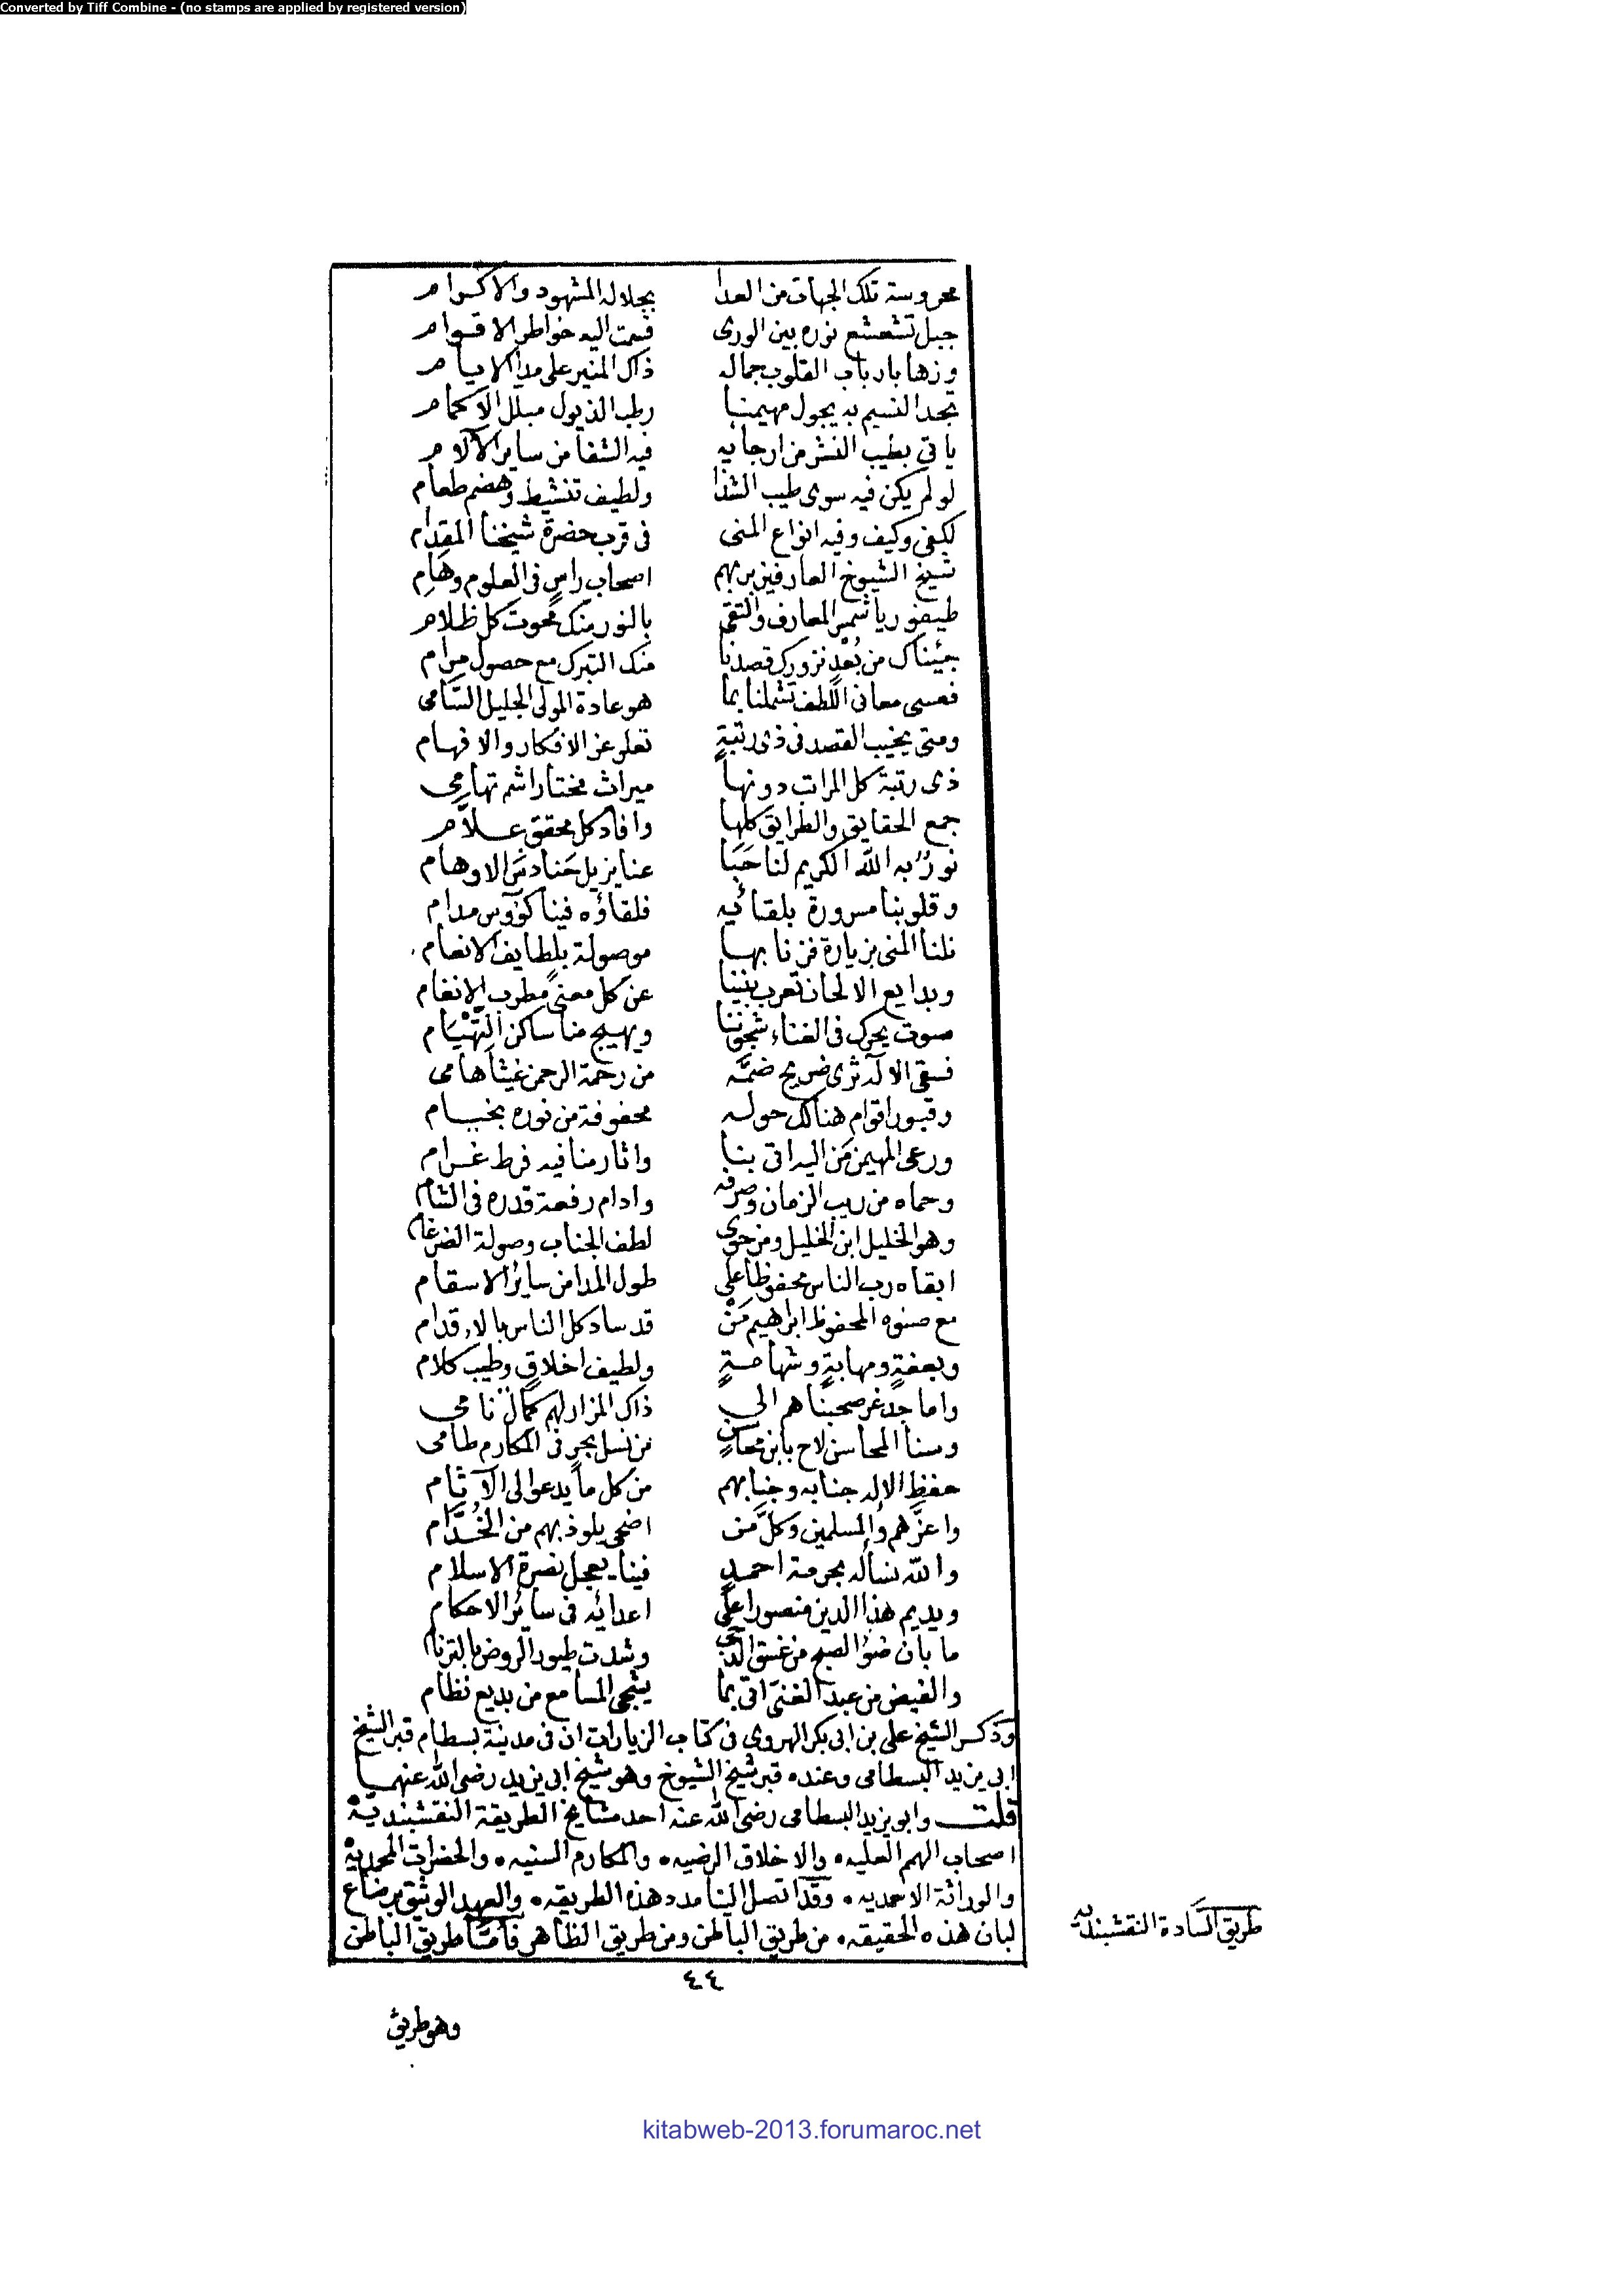 Converted by Tiff Combine - (no stamps are applied by registered version)
محروسة تلك الجهات من العدا بجلاله المشهود والاكرام
جبل تشعشع نوره بين الورى فسمت اليه خواطر الاقوام
وزها بارباب القلوب جماله ذاك المنير على مدا الايام
تجد النسيم به يجول مهيمنا رطب الذيول مبلل الاكمام
ياتى بطيب النشر من ارجائه فيه الشفا من ساير الآلام
لو لم يكن فيه سوى طيب الشذا ولطيف تنشيط وهضم طعام
لكفى وكيف وفيه انواع المنى فى قرب حضرة شيخنا المقدام
شيخ الشيوخ العارفين بربهم اصحاب راس فى العلوم وهام
طيفور يا شمس المعارف والتقى بالنور منك محوت كل ظلام
جيناك من بعد نزورك قصدنا منك التبرك مع حصول مرام
فعسى معانى اللطف تشملنا بما هو عادة المولى الجليل السامى
ومتى يخيب القصد فى ذى رتبة تعلو عن الافكار والافهام
ذى رتبة كل المراتب دونها ميراث مختار اشم تهامى
جمع الحقايق والطرايق كلها وافاد كل محقق علام
نور به الله الكريم لنا حبا عنا يزيل حنادس الاوهام
وقلوبنا مسرورة بلقائه فلقاؤه فينا كؤوس مدام
نلنا المنى بزيارة فزنا بها موصولة بلطايف الانعام
وبدايع الالحان تعرب بيننا عن كل معنى مطرب الانغام
صوت يحرك فى الغناء شجوننا ويهيج منا ساكن التهيام
فسقى الاله ثرى ضريح ضمه من رحمة الرحمن غيثا هامى
وقبور اقوام هناك حوله محفوفة من نوره بخيام
ورعى المهيمن من اليه اتى بنا واثار منا فيه فرط غرام
وحماه من ريب الزمان وصرفه وادام رفعة قدره فى الشام
وهو الخليل ابن الخليل ومن حوى لطف الجناب وصولة الضرغام
ابقاه رب الناس محفوظا على طول المدا من سائر الاسقام
مع صنوه المحفوظ ابراهيم من قد ساد كل الناس بالاقدام
وبعفة ومهابة وشهامة ولطيف اخلاق وطيب كلام
واماجد غر صحبناهم الى ذاك المزار لهم كمال نامى
وسنا المحاسن لاح بابن محاسن من نسل بحر فى المكارم طامى
حفظ الاله جنابه وجنابهم من كل ما يدعو الى الآثام
واعزهم والمسلمين وكل من اضحى يلوذ بهم من الخدام
والله نساله بحرمة احمد فينا يعجل نصرة الاسلام
ويديم هذا الدين منصورا على اعدائه فى سائر الاحكام
ما بان ضوء الصبح من غسق الدجى وشدت طيور الروض بالترنام
والفيض من عبد الغنى اتى بما يشجى المسامع من بديع نظام
وذكر الشيخ على بن ابى بكر الهروى فى كتاب الزيارات ان فى مدينة بسطام قبر الشيخ
ابى يزيد البسطامى وعنده قبر شيخ الشيوخ وهو شيخ ابى يزيد رضى الله عنهما
قلت وابو يزيد البسطامى رضى الله عنه احد مشايخ الطريقة النقشبندية
اصحاب الهمم العليه. والاخلاق الرضيه. والمكارم السنيه. والحضرات المحمدية
والوراثة الاحمديه. وقد اتصل الينا مدد هذه الطريقه. والعهد الوثيق برضاع
لبان هذه الحقيقه. من طريق الباطن ومن طريق الظاهر فاما طريق الباطن
طريق السادة النقشبنديه
٤٤
وهو طريق
kitabweb-2013.forumaroc.net